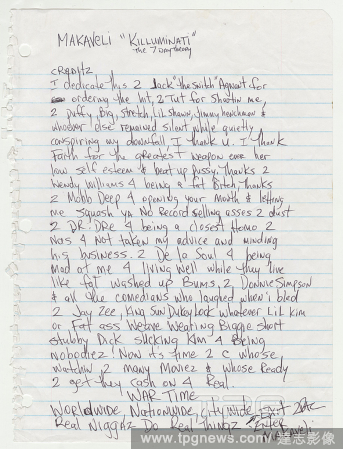 MAKAVELI "KILLUMINATI"
the 7 Day theory
CREDITZ
I dedicate this 2 Jack "the Snitch" Agnant for
ordering the hit, 2 Tut for Shootin me,
2 Puffy, Big, Stretch, Lil Shawn, Jimmy henchman &
whoever else remained silent while quietly
conspiring my downfall, I thank u. I Thank
Faith for the greatest weapon ever her
low self esteem & beat up pussy. Thanks 2
Wendy Williams 4 being a fat Bitch, Thanks
2 Mobb Deep 4 opening your mouth & letting
me squash ya No Record selling asses 2 dust
2 DR. DRE 4 being a closest Homo 2
Nas 4 Not taken my advice and minding
his business. 2 De la Soul 4 being
mad at me 4 living well while they live
like fat washed up Bums, 2 Donnie Simpson
& all the comedians who laughed when i bled
2 Jay Zee, King Sun Dukey look whatever Lil Kim
or Fat ass Weave Wearing Biggie short
stubby Dick sucking Kim 4 Being
nobodiez! Now its time 2 c whose
Watchin 2 many Moviez & whose Ready
2 get they cash on 4 Real.
WAR TIME
Worldwide, Nationwide, city wide Exit 2PAC
Real Niggaz Do Real Thingz Enter
Makaveli
www.tpgnews.com 達志影像